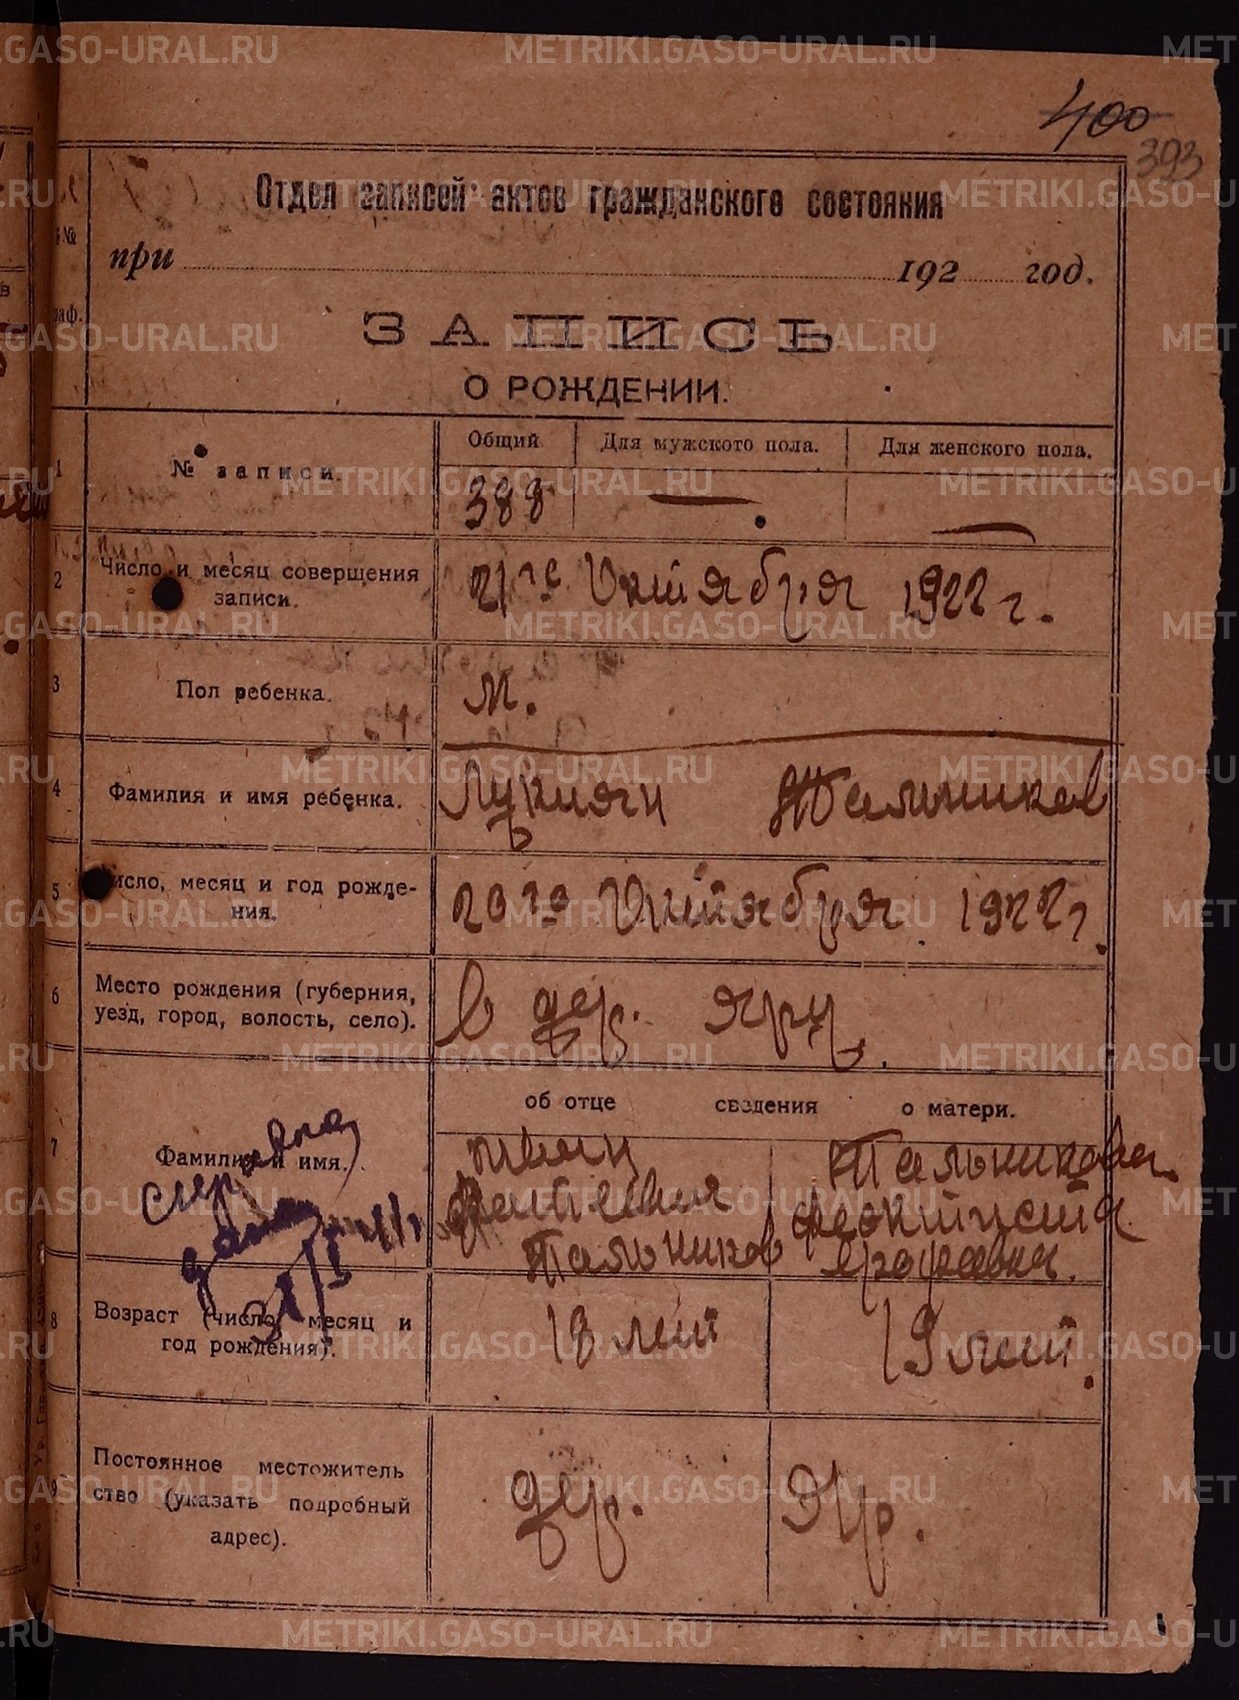 400
393
Отдел записей актов гражданского состояния
при 192 год.
ЗАПИСЬ
О РОЖДЕНИИ.
Общий Для мужского пола. Для женского пола.
1 № записи. 388 — —
2 Число и месяц совершения записи. 21го Октября 1922 г.
3 Пол ребенка. м.
4 Фамилия и имя ребенка. Лукиян Тальников
5 исло, месяц и год рожде-
ния. 20 го Октября 1922 г.
6 Место рождения (губерния,
уезд, город, волость, село). в дер. Яру.
об отце сведения о матери.
7 Фамилия и имя. Иван Тальникова
Тальников
8 Возраст (число, месяц и
год рождения). 18 лет 19 лет.
9 Постоянное местожитель
ство (указать подробный
адрес). дер. Яр.
METRIKI.GASO-URAL.RU